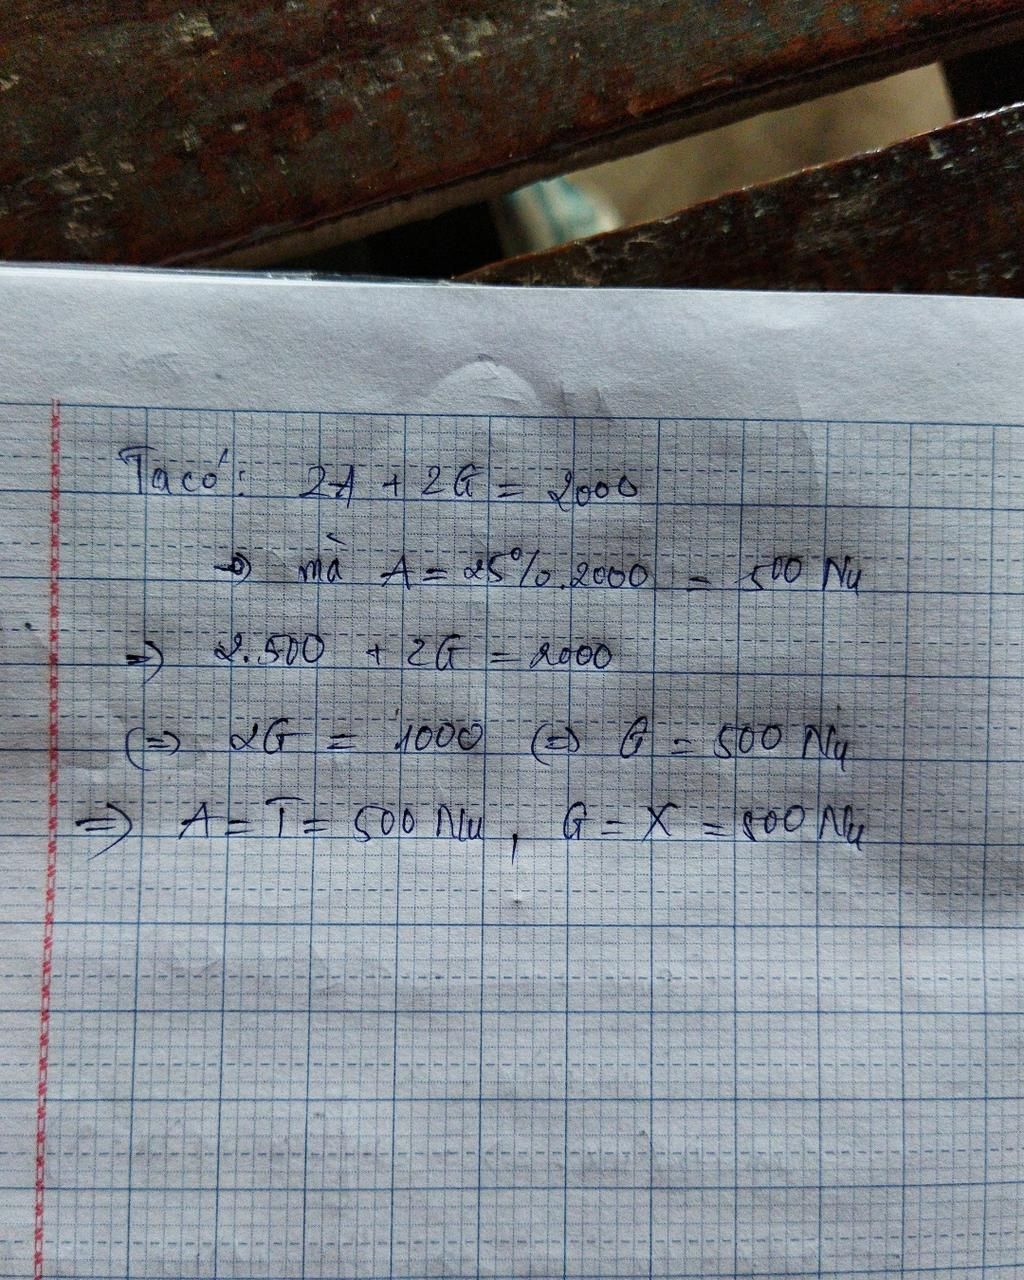 Ta có: 2A + 2G = 2000
=> mà A = 25%.2000 = 500 Nu
=> 2.500 + 2G = 2000
(=) 2G = 1000 (=) G = 500 Nu
=> A = T = 500 Nu, G = X = 500 Nu